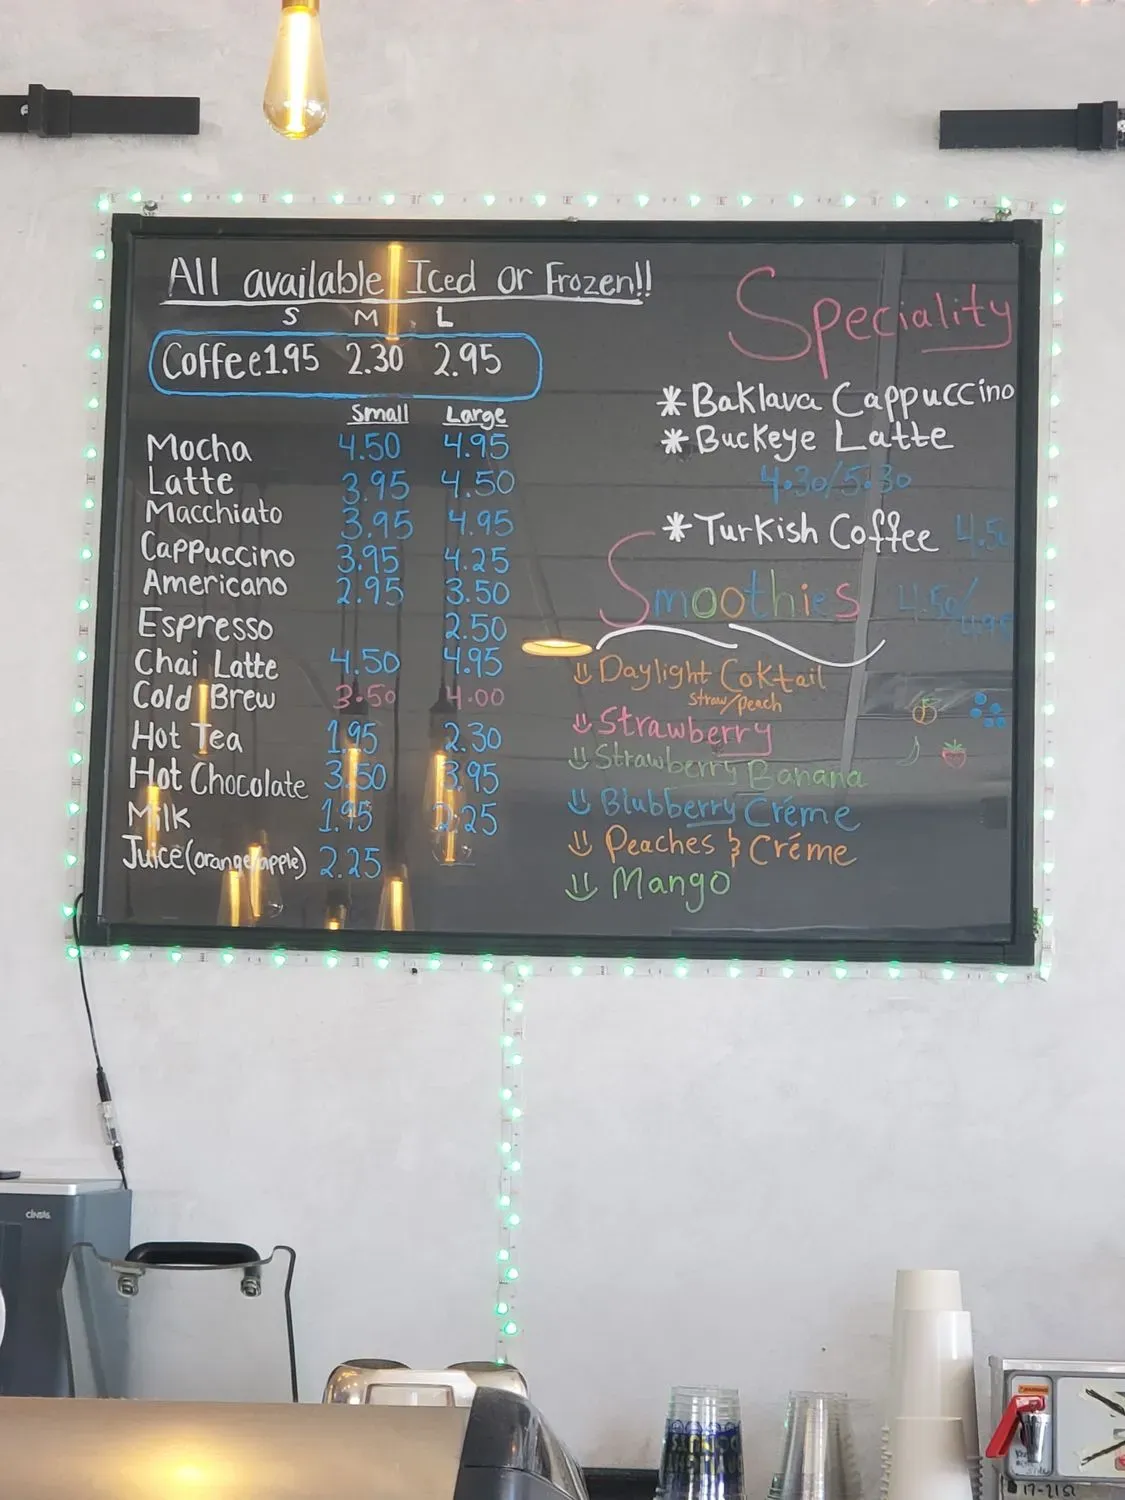 All available Iced or Frozen!!
S M L
Coffee 1.95 2.30 2.95
Small Large
Mocha 4.50 4.95
Latte 3.95 4.50
Macchiato 3.95 4.95
Cappuccino 3.95 4.25
Americano 2.95 3.50
Espresso 2.50
Chai Latte 4.50 4.95
Cold Brew 3.50 4.00
Hot Tea 1.95 2.30
Hot Chocolate 3.50 3.95
Milk 1.95 2.25
Juice (orange/apple) 2.25
Speciality
* Baklava Cappuccino
* Buckeye Latte
4.30/5.30
* Turkish Coffee 4.50
Smoothies 4.50/
Daylight Coktail
straw/peach
Strawberry
Strawberry Banana
Blubberry Créme
Peaches & Créme
Mango
cintas
17-21